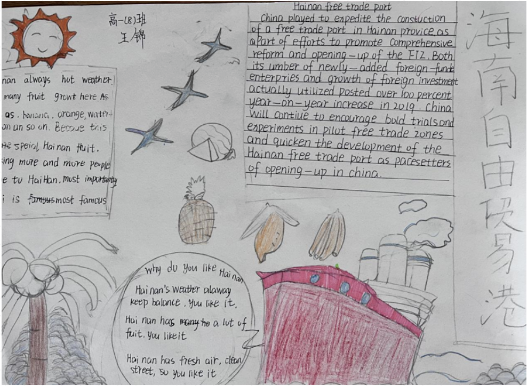 高一(8)班
王锦
nan always hot weather
many fruit grow here As
as. banana. orange, water
on un so on. Becouse this
the speical Hai nan fruit.
ing more and more people
e to HaiNan. most importanty
i is famous most famous
Hainan free trade port
China played to expedite the constuction
of a free trade port in Hainan provice.as
a part of efforts to promote comprehensive
reform and opening-up of the FTZ. Both
its umber of newly-added foreign-fund
enterpries and growth of foreign investment
actually utilized posted over 100 percent
year-on-year increase in 2019. China
will contiue to encourage bold trials and
experiments in pilot free trade zones
and quicken the development of the
Hainan free trade port as pacesetters
of opening-up in china.
海南自由贸易港
Why do you like Hai nan
Hai nan's weather alaway
keep balance. you like it.
Hai nan has many to a lot of
fruit. you like it
Hai nan has fresh air, clean
street, so you like it